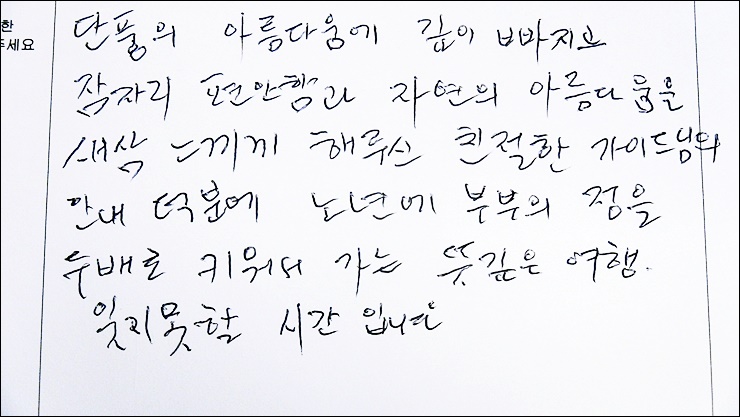 한
주세요
단풍의 아름다움에 깊이 빠지고
잠자리 편안함과 자연의 아름다움을
새삼 느끼게 해주신 친절한 가이드님의
안내 덕분에 노년에 부부의 정을
두배로 키워서 가는 뜻깊은 여행.
잊지못할 시간 입니다